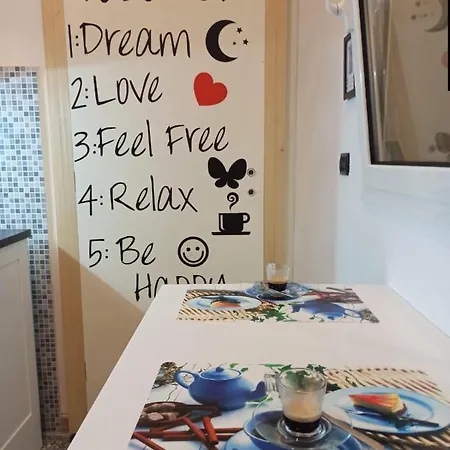 1:Dream
2:Love
3:Feel Free
4:Relax
5:Be
Happy